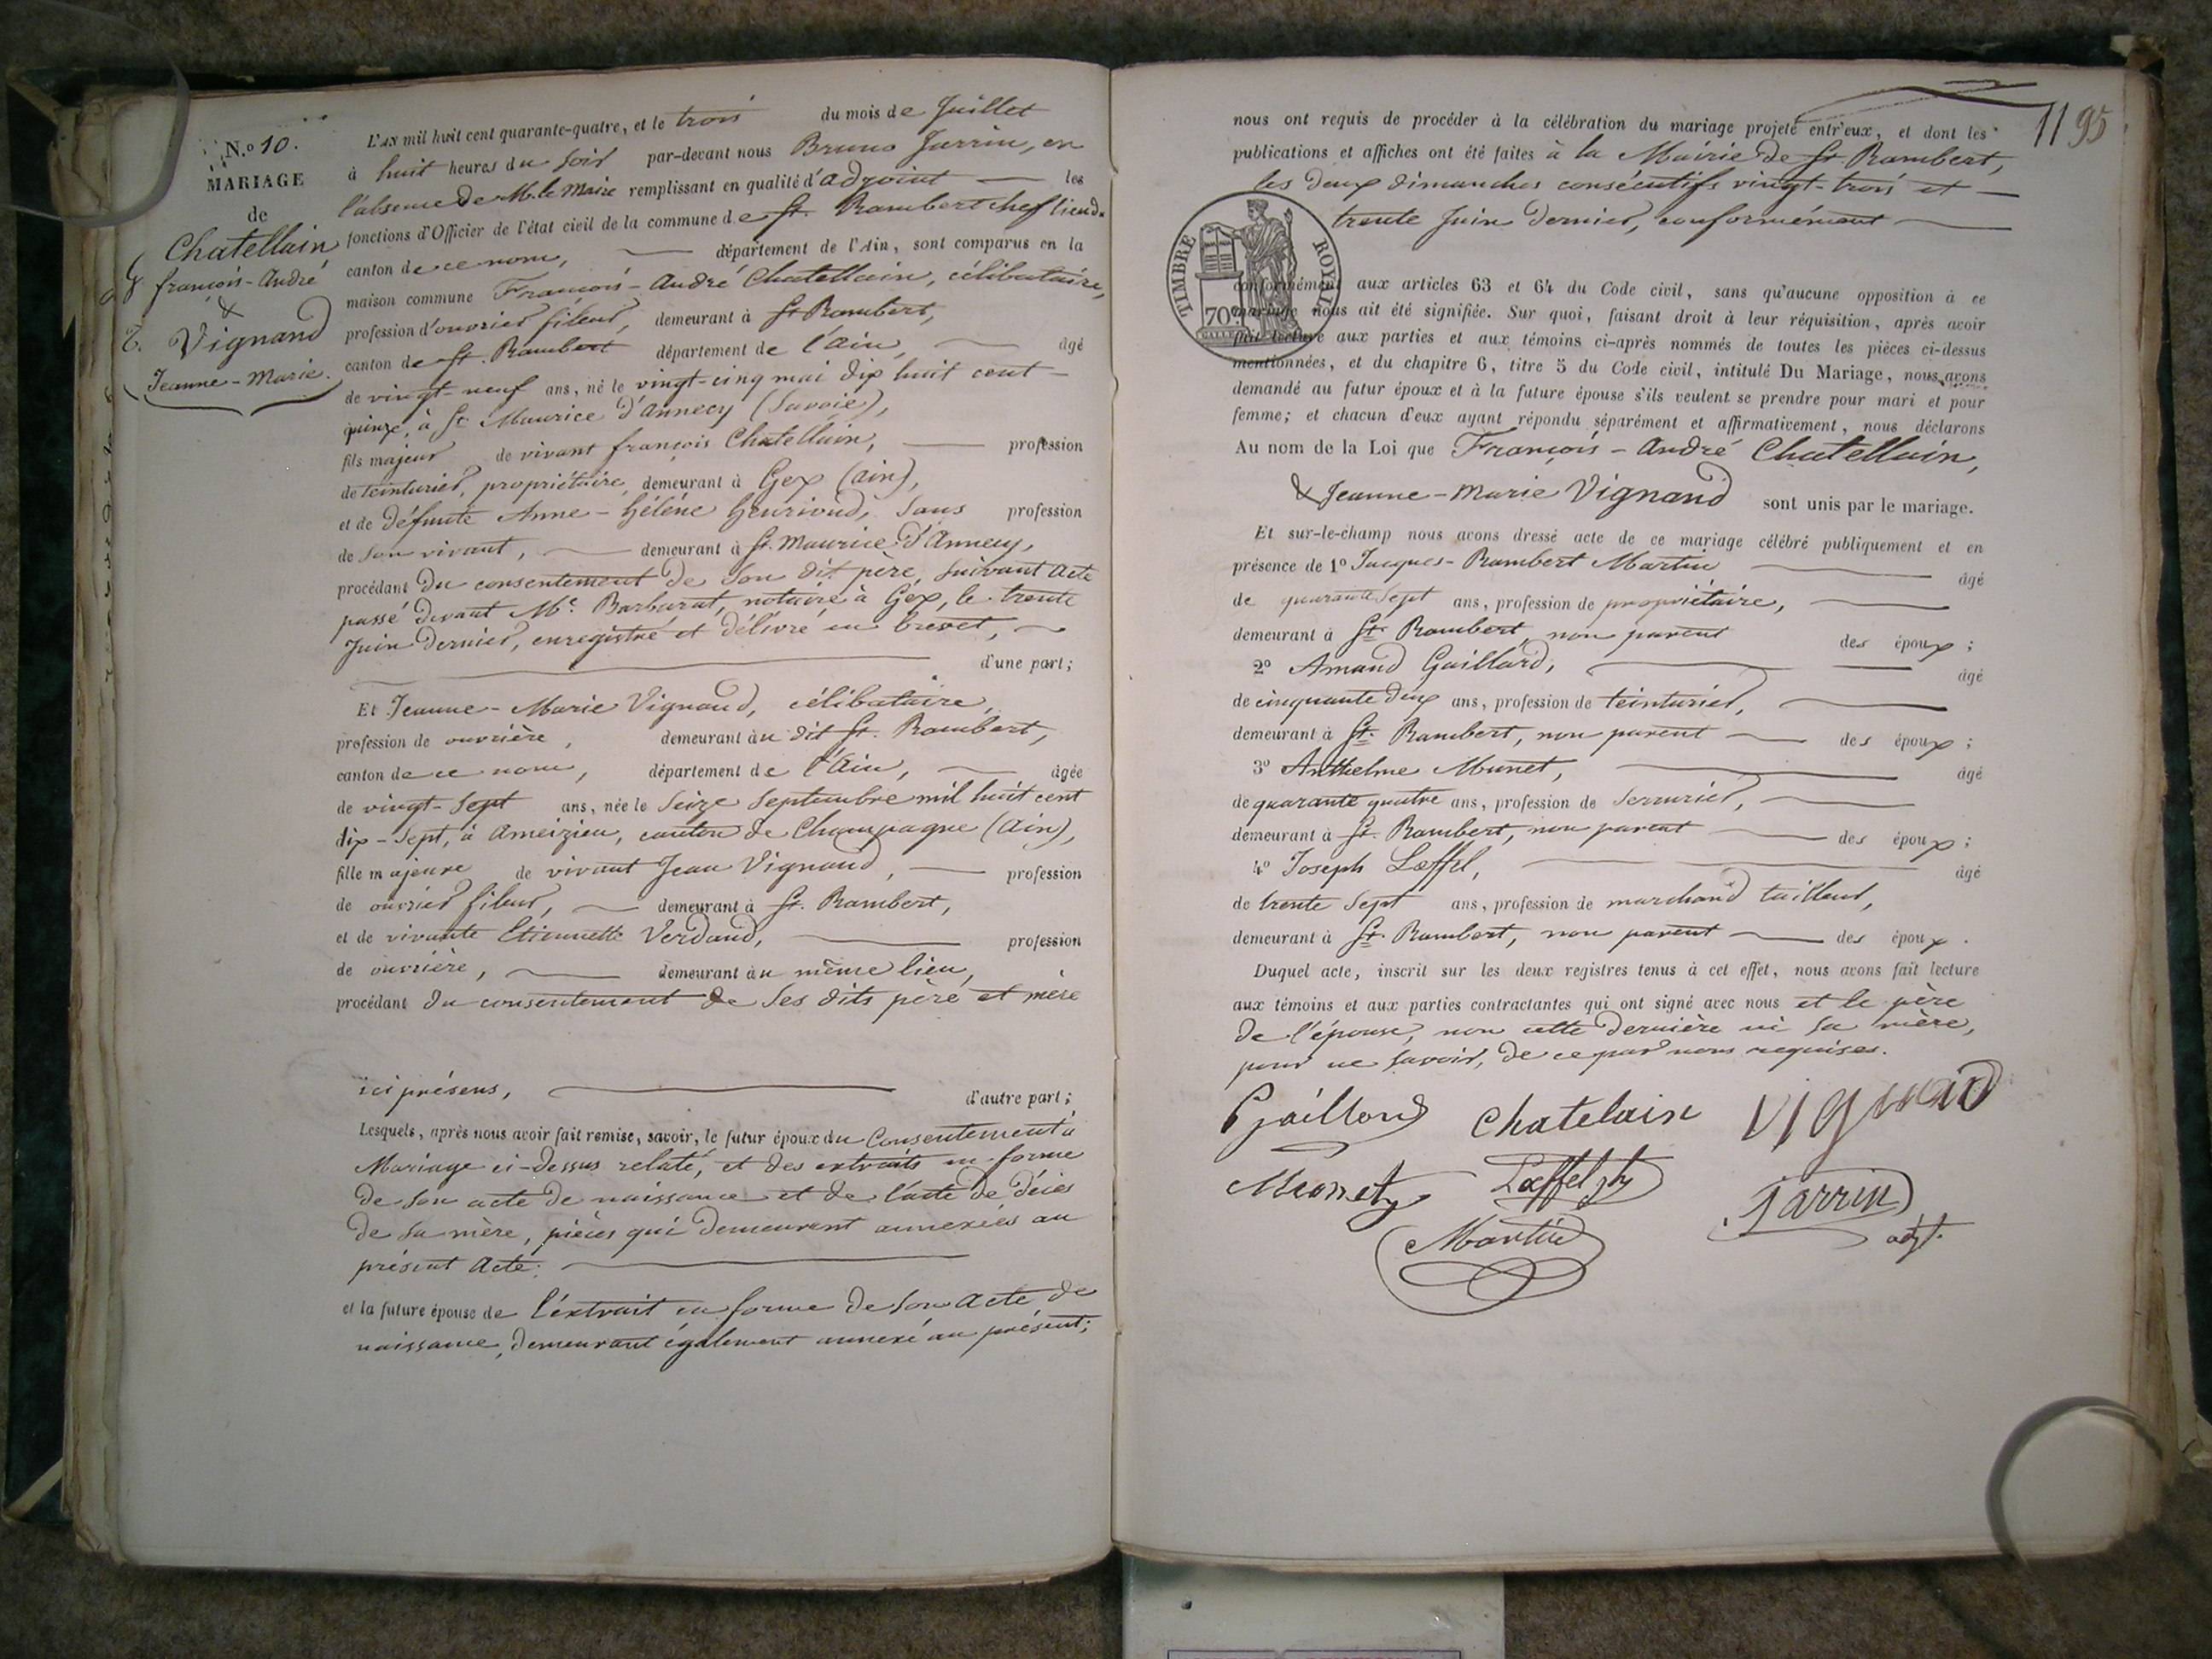 N.o 10.
MARIAGE
de
Chatellain
françois-André
&
Vignand
Jeanne-Marie.
L'AN mil huit cent quarante-quatre, et le trois du mois de Juillet
à huit heures du soir par-devant nous Bruno Jarrin, en
l'absence de Mr. le Maire remplissant en qualité d'adjoint les
fonctions d'Officier de l'état civil de la commune de St. Rambert chef lieu de
canton de ce nom, département de l'Ain, sont comparus en la
maison commune François-André Chatellain, célibataire,
profession d'ouvrier fileur, demeurant à St Rambert,
canton de St. Rambert département de l'ain, âgé
de vingt-neuf ans, né le vingt-cinq mai dix huit cent
quinze, à St Maurice d'Annecy (Savoie),
fils majeur de vivant françois Chatellain, profession
de teinturier, propriétaire, demeurant à Gex (ain),
et de défunte Anne-Hélène Henrioud, Sans profession
de son vivant, demeurant à St. Maurice d'Annecy,
procédant du consentement de son dit père, suivant acte
passé devant Me. Barburat, notaire à Gex, le trente
Juin dernier, enregistré et délivré en brevet,
d'une part;
Et Jeanne-Marie Vignand, célibataire,
profession de ouvrière, demeurant au dit St. Rambert,
canton de ce nom, département de l'Ain, âgée
de vingt-sept ans, née le Seize Septembre mil huit cent
dix-sept, à Ameizieu, canton de Champagne (Ain),
fille majeure de vivant Jean Vignand, profession
de ouvrier fileur, demeurant à St. Rambert,
et de vivante Etiennette Verdand, profession
de ouvrière, demeurant au même lieu,
procédant du consentement de ses dits père et mère
ici présens, d'autre part;
Lesquels, après nous avoir fait remise, savoir, le futur époux du Consentement à
Mariage ci-dessus relaté, et des extraits en forme
de son acte de naissance et de l'acte de décès
de sa mère, pièces qui demeurent annexées au
présent acte.
et la future épouse de l'extrait en forme de son acte de
naissance, demeurant également annexé au présent;
11 95
nous ont requis de procéder à la célébration du mariage projeté entr'eux, et dont les
publications et affiches ont été faites à la Mairie de St. Rambert,
les deux dimanches consécutifs vingt-trois et
trente Juin dernier, conformément
TIMBRE ROYAL
70c
conformément aux articles 63 et 64 du Code civil, sans qu'aucune opposition à ce
mariage nous ait été signifiée. Sur quoi, faisant droit à leur réquisition, après avoir
fait lecture aux parties et aux témoins ci-après nommés de toutes les pièces ci-dessus
mentionnées, et du chapitre 6, titre 5 du Code civil, intitulé Du Mariage, nous avons
demandé au futur époux et à la future épouse s'ils veulent se prendre pour mari et pour
femme; et chacun d'eux ayant répondu séparément et affirmativement, nous déclarons
Au nom de la Loi que François-André Chatellain,
& Jeanne-Marie Vignand sont unis par le mariage.
Et sur-le-champ nous avons dressé acte de ce mariage célébré publiquement et en
présence de 1o Jacques-Rambert Martin âgé
de quarante sept ans, profession de propriétaire,
demeurant à St. Rambert, non parent des époux;
2o Amand Gaillard, âgé
de cinquante deux ans, profession de teinturier,
demeurant à St. Rambert, non parent des époux;
3o Anthelme Munet, âgé
de quarante quatre ans, profession de Serrurier,
demeurant à St. Rambert, non parent des époux;
4o Joseph Læffel, âgé
de trente sept ans, profession de marchand tailleur,
demeurant à St. Rambert, non parent des époux.
Duquel acte, inscrit sur les deux registres tenus à cet effet, nous avons fait lecture
aux témoins et aux parties contractantes qui ont signé avec nous et le père
de l'épouse, non cette dernière ni sa mère,
pour ne savoir, de ce par nous requises.
Gaillard Chatelain Vignand
Monet Læffel Jarrin
Martin adjt.